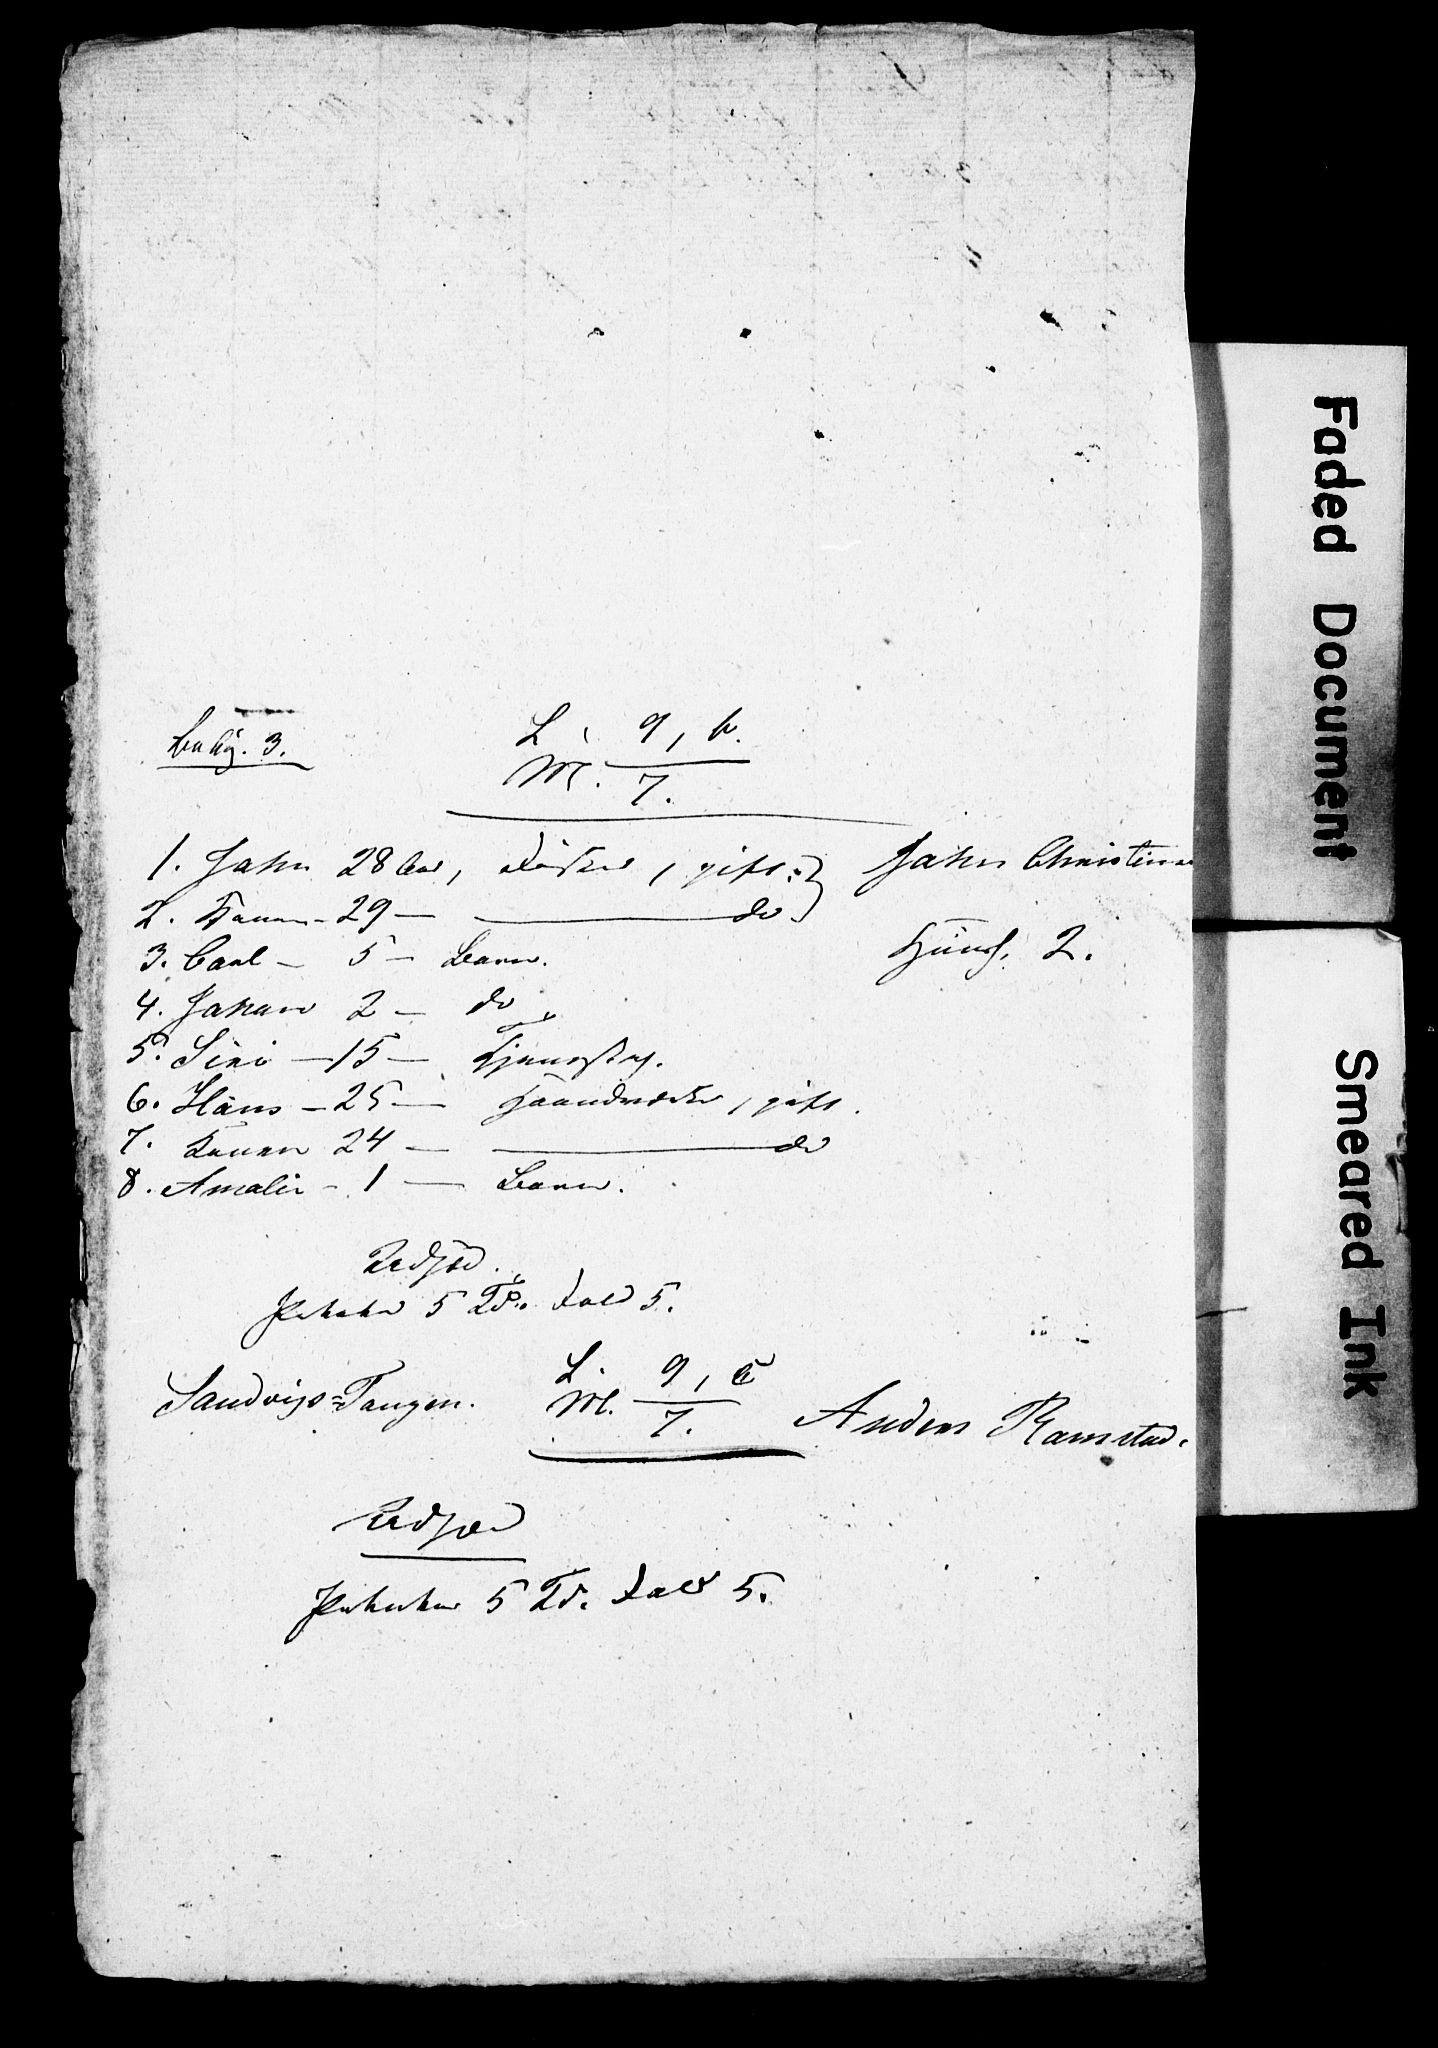 L. 9, b.
M. 7.
1. John 28 Aar, Fisker, gift.
John Christin
2. 29 — do
Huus, 2.
3. Carl — 5 — Barn.
4. Johan 2 — do
5. Siri — 15 — Tjenestp.
6. Hans — 25 — Haandværker, gift.
7. Karen 24 — do
8. Amalie — 1 — Barn.
Udsæd.
Poteter 5 Td. Fold 5.
Sandvigs=Tangen.
L. 9, c
M. 7.
Anders Ramstad.
Udsæd
Poteter 5 Td. Fold 5.
Faded Document
Smeared Ink